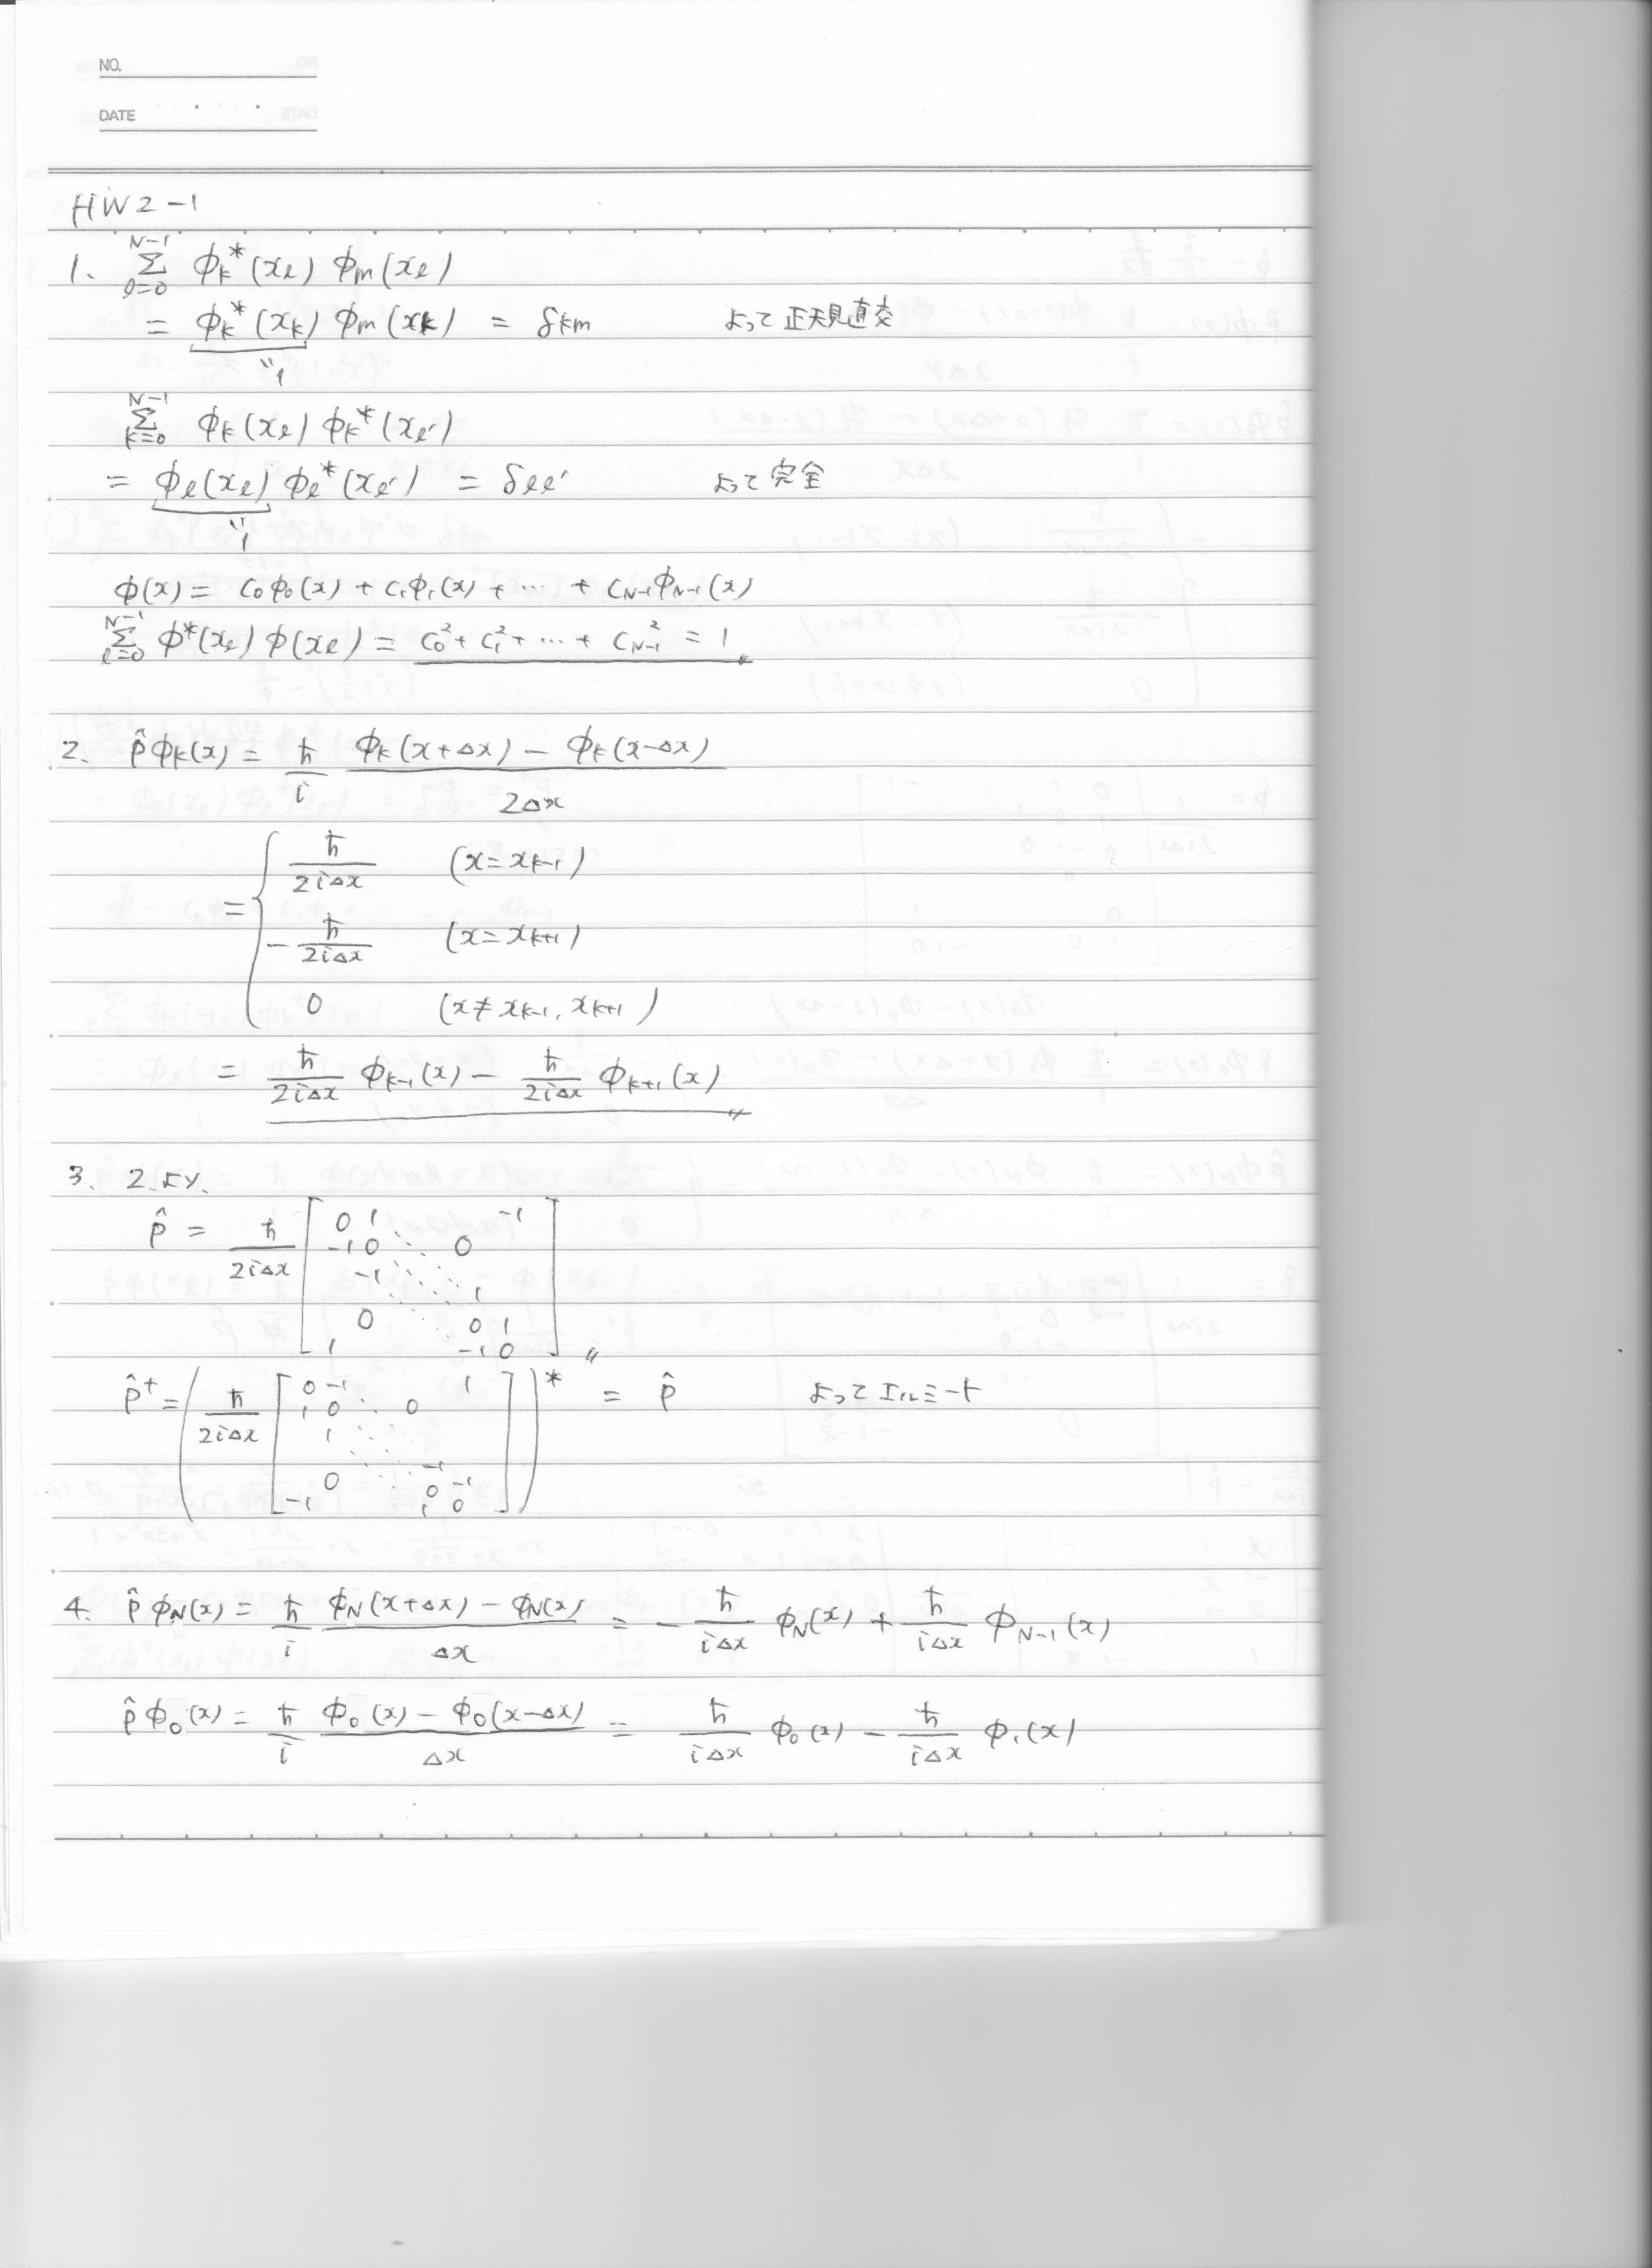 NO.
DATE
HW2-1
1. Σ_{l=0}^{N-1} φk*(xl) φm(xl)
= φk*(xk) φm(xk) = δkm よって正規直交
"1
Σ_{k=0}^{N-1} φk(xl) φk*(xl')
= φl(xl) φl*(xl') = δll' よって完全
"1
φ(x) = c0φ0(x) + c1φ1(x) + ... + cN-1φN-1(x)
Σ_{l=0}^{N-1} φ*(xl) φ(xl) = c0² + c1² + ... + cN-1² = 1〃
2. p̂φk(x) = ħ/i (φk(x+Δx) - φk(x-Δx))/2Δx
= { ħ/2iΔx (x = xk-1)
-ħ/2iΔx (x = xk+1)
0 (x ≠ xk-1, xk+1)
= ħ/2iΔx φk-1(x) - ħ/2iΔx φk+1(x)〃
3. 2.より.
p̂ = ħ/2iΔx [ 0 1 -1
-1 0 ⋱ 0
-1 ⋱ ⋱
1
0 0 1
1 -1 0 ]〃
p̂† = ( ħ/2iΔx [ 0 -1 1
1 0 ⋱ 0
1 ⋱
⋱ -1
0 0 -1
-1 1 0 ] )* = p̂ よってエルミート
4. p̂φN(x) = ħ/i (φN(x+Δx) - φN(x))/Δx = -ħ/iΔx φN(x) + ħ/iΔx φN-1(x)
p̂φ0(x) = ħ/i (φ0(x) - φ0(x-Δx))/Δx = ħ/iΔx φ0(x) - ħ/iΔx φ1(x)